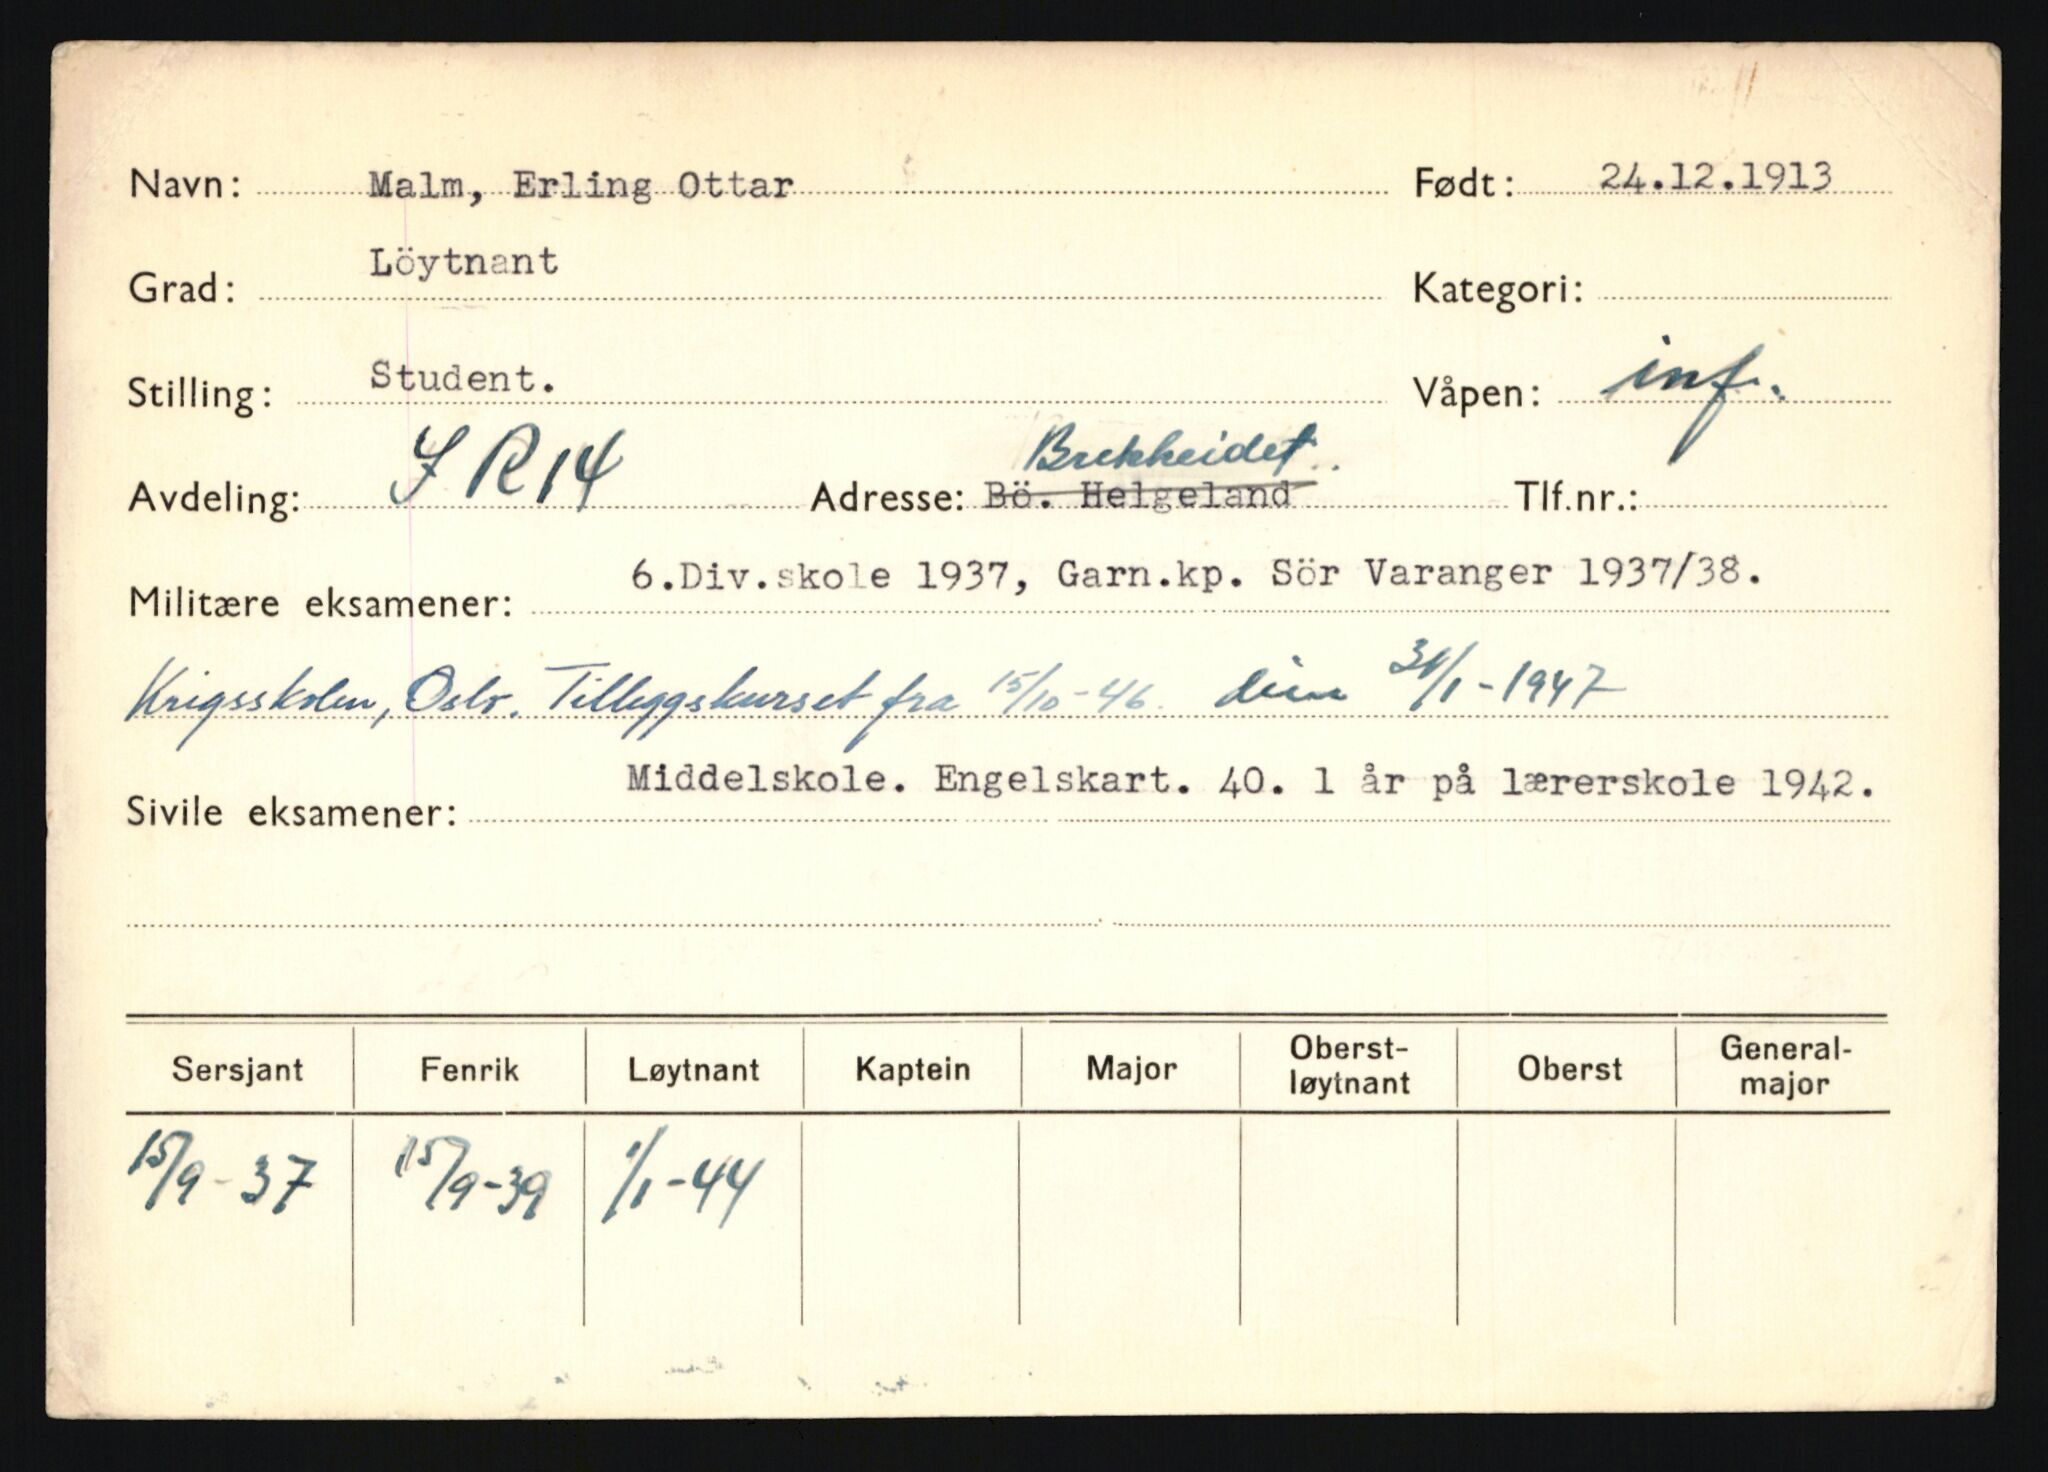 Navn: Malm, Erling Ottar Født: 24.12.1913
Grad: Löytnant Kategori:
Stilling: Student. Våpen: inf.
Brekkeidet
Avdeling: IR 14 Adresse: Bö. Helgeland Tlf.nr.:
Militære eksamener: 6.Div.skole 1937, Garn.kp. Sör Varanger 1937/38.
Krigsskolen, Oslo. Tilleggskurset fra 15/10-46. dim 31/1-1947
Sivile eksamener: Middelskole. Engelskart. 40. 1 år på lærerskole 1942.
Sersjant Fenrik Løytnant Kaptein Major Oberst-løytnant Oberst General-major
15/9-37 15/9-39 1/1-44